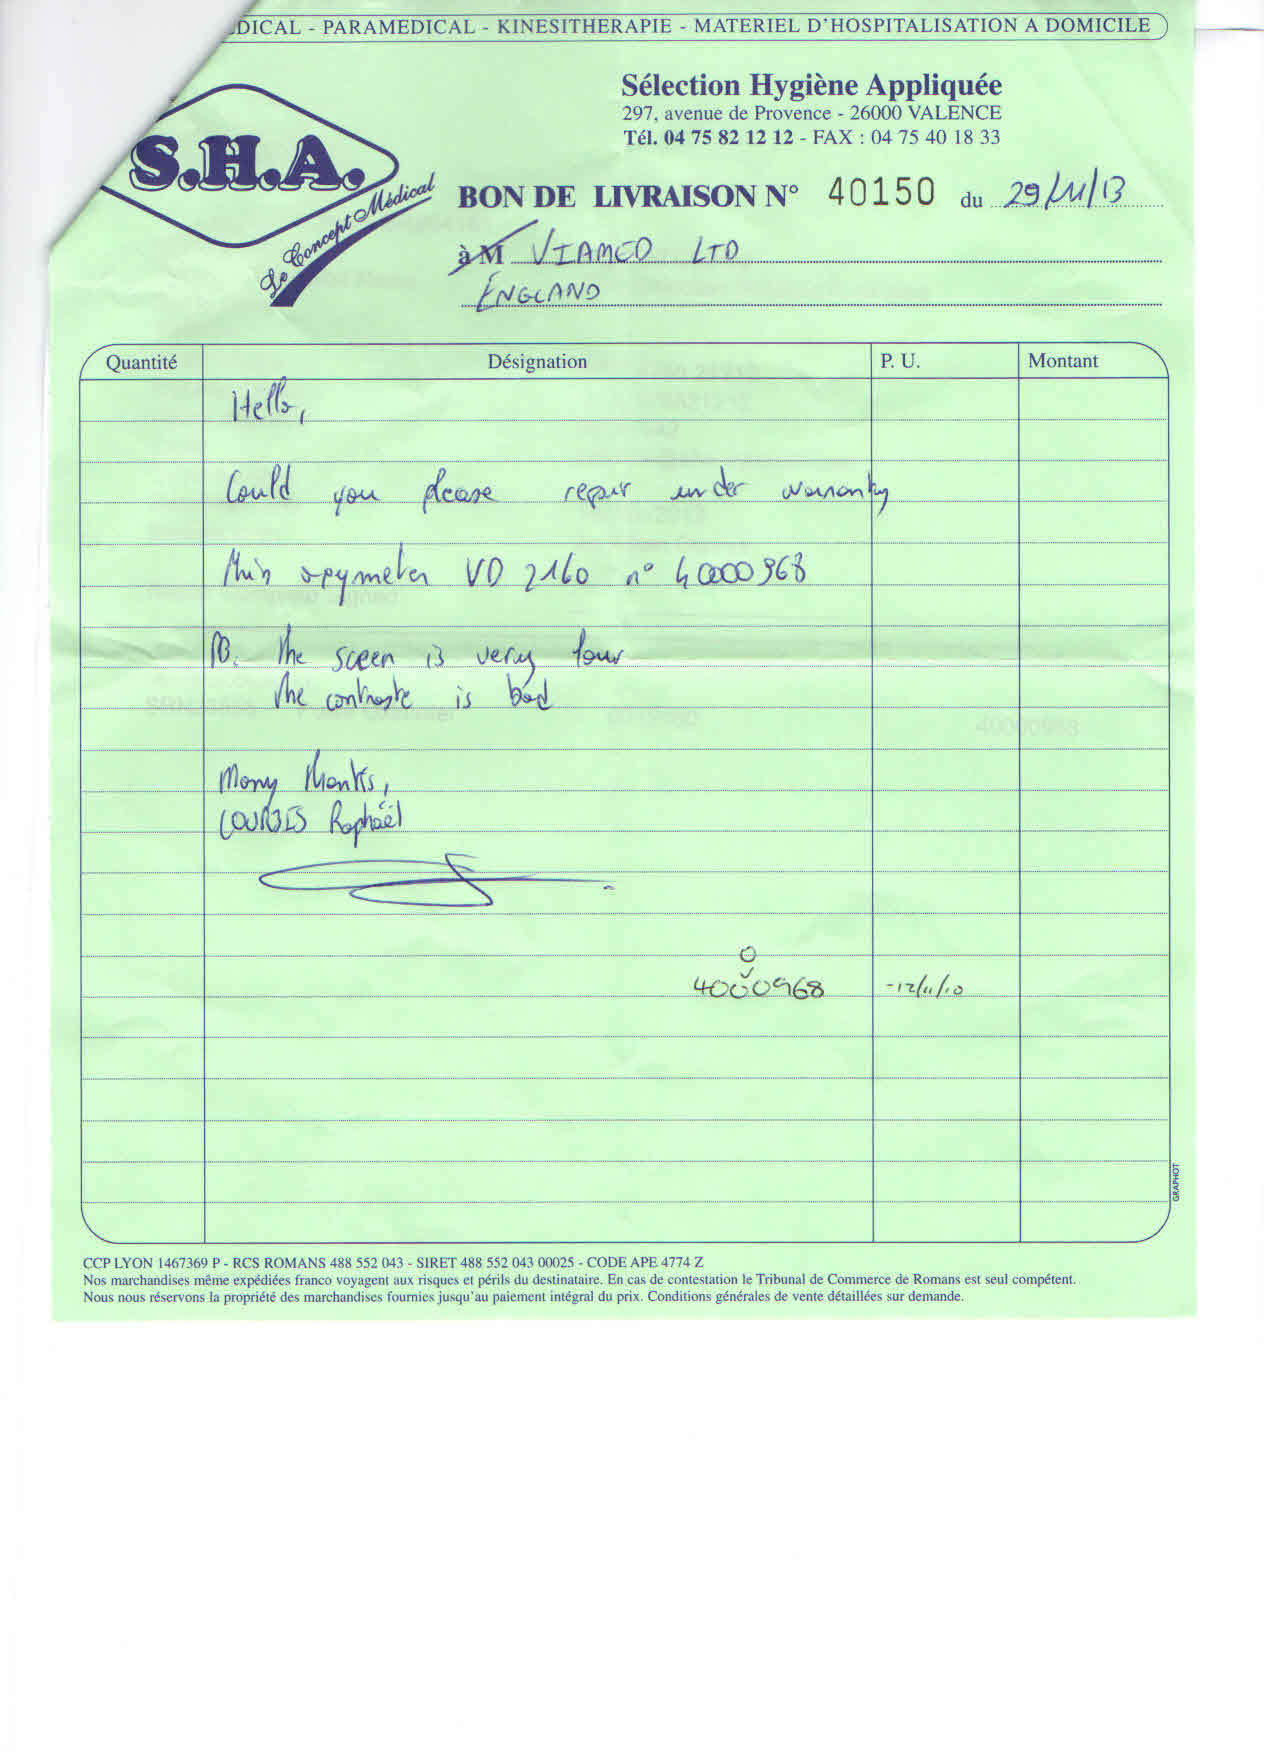 DICAL - PARAMEDICAL - KINESITHERAPIE - MATERIEL D'HOSPITALISATION A DOMICILE
S.H.A.
Le Concept Médical
Sélection Hygiène Appliquée
297, avenue de Provence - 26000 VALENCE
Tél. 04 75 82 12 12 - FAX : 04 75 40 18 33
BON DE LIVRAISON N° 40150 du 29/11/13
à M VIAMED LTD
ENGLAND
Quantité Désignation P. U. Montant
Hello,
Could you please repair under warranty
this oxymeter VD 2160 n° 40000968
PB. the sceen is very
the contraste is bad
Many thanks,
Raphaël
0
4000968 -12/11/10
GRAPHOT
CCP LYON 1467369 P - RCS ROMANS 488 552 043 - SIRET 488 552 043 00025 - CODE APE 4774 Z
Nos marchandises même expédiées franco voyagent aux risques et périls du destinataire. En cas de contestation le Tribunal de Commerce de Romans est seul compétent.
Nous nous réservons la propriété des marchandises fournies jusqu'au paiement intégral du prix. Conditions générales de vente détaillées sur demande.